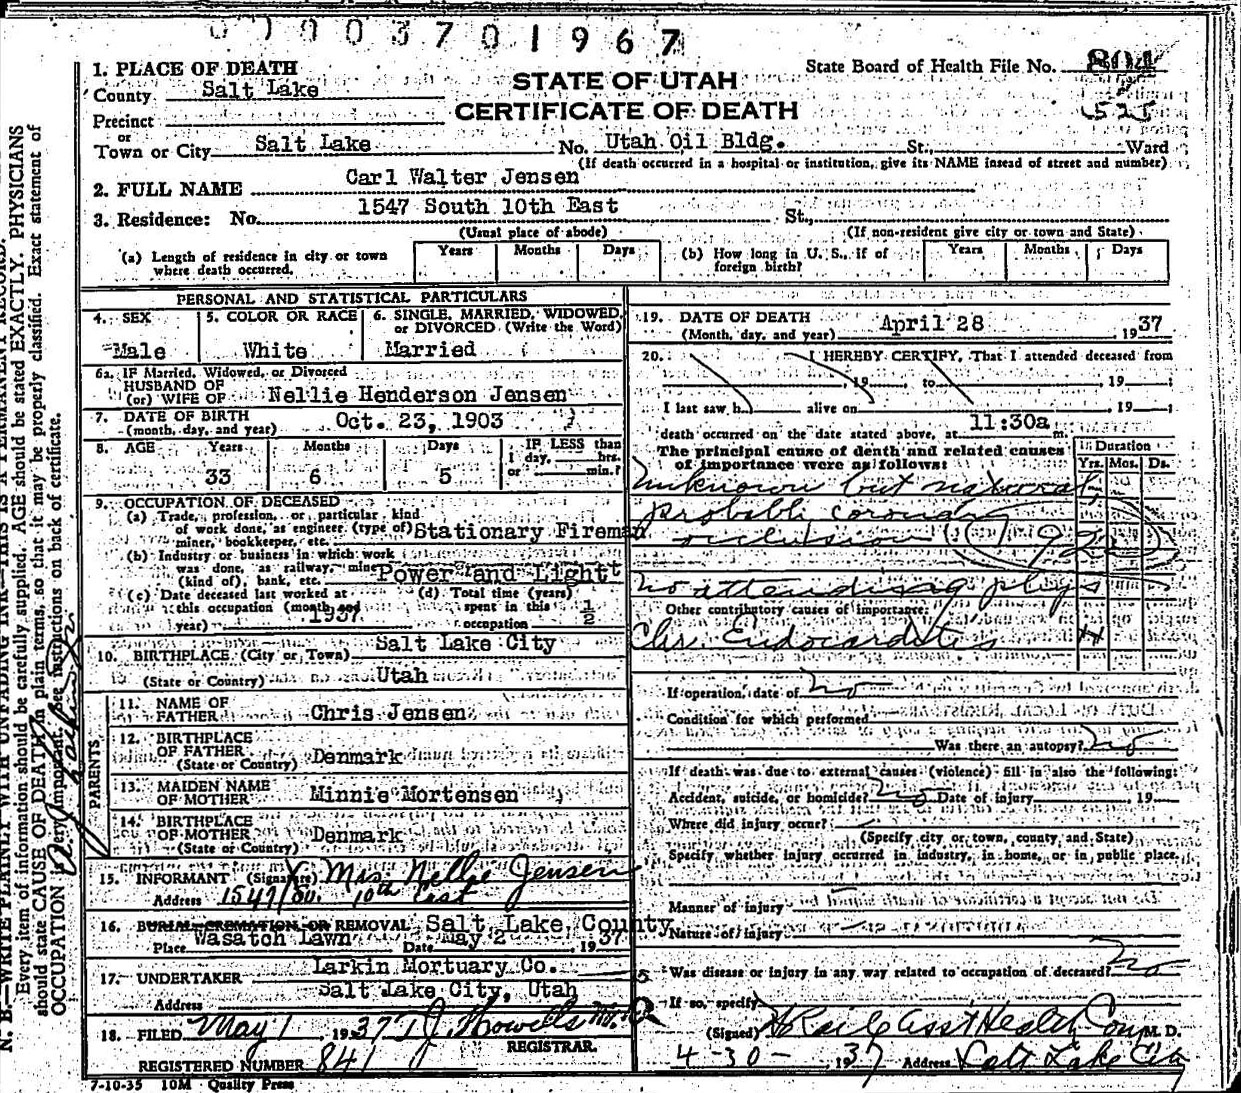 0000370 1967
State Board of Health File No. 804
STATE OF UTAH
CERTIFICATE OF DEATH
525
1. PLACE OF DEATH
County Salt Lake
Precinct
or
Town or City Salt Lake No. Utah Oil Bldg. St., Ward
(If death occurred in a hospital or institution, give its NAME insead of street and number)
2. FULL NAME Carl Walter Jensen
3. Residence: No. 1547 South 10th East St.,
(Usual place of abode) (If non-resident give city or town and State)
(a) Length of residence in city or town where death occurred. Years Months Days
(b) How long in U. S., if of foreign birth? Years Months Days
PERSONAL AND STATISTICAL PARTICULARS
4. SEX 5. COLOR OR RACE 6. SINGLE, MARRIED, WIDOWED,
or DIVORCED (Write the Word)
Male White Married
6a. IF Married, Widowed, or Divorced
HUSBAND OF
(or) WIFE OF Nellie Henderson Jensen
7. DATE OF BIRTH
(month, day, and year) Oct. 23, 1903
8. AGE Years Months Days IF LESS than
1 day, hrs.
or min.?
33 6 5
9. OCCUPATION OF DECEASED
(a) Trade, profession, or particular kind
of work done, as engineer (type of)
miner, bookkeeper, etc. Stationary Fireman
(b) Industry or business in which work
was done, as railway, mine
(kind of), bank, etc. Power and Lightt
(c) Date deceased last worked at
this occupation (month and
year) 1937
(d) Total time (years)
spent in this
occupation 1/2
10. BIRTHPLACE (City or Town) Salt Lake City
(State or Country) Utah
PARENTS
11. NAME OF
FATHER Chris Jensen
12. BIRTHPLACE
OF FATHER
(State or Country) Denmark
13. MAIDEN NAME
OF MOTHER Minnie Mortensen
14. BIRTHPLACE
OF MOTHER
(State or Country) Denmark
15. INFORMANT (Signature) Mrs Nellie Jensen
Address 1547 So. 10th East
16. BURIAL CREMATION OR REMOVAL Salt Lake, County
Place Wasatch Lawn Date May 2, 1937
17. UNDERTAKER Larkin Mortuary Co.
Address Salt Lake City, Utah
18. FILED May 1 1937 T J Howells M.D.
REGISTRAR.
REGISTERED NUMBER 841
7-10-35 10M Quality Press
19. DATE OF DEATH
(Month, day, and year) April 28 1937
20. I HEREBY CERTIFY, That I attended deceased from
, 19 , to , 19 ;
I last saw h alive on , 19 ;
death occurred on the date stated above, at 11:30a m.
The principal cause of death and related causes
of importance were as follows:
Duration
Yrs. Mos. Ds.
Unknown but natural,
probabli coronary
occlusion
no attending phys
Other contributory causes of importance:
Chr. Endocarditis
If operation, date of no
Condition for which performed
Was there an autopsy? no
If death was due to external causes (violence) fill in also the following:
Accident, suicide, or homicide? no Date of injury , 19
Where did injury occur?
(Specify city or town, county and State)
Specify whether injury occurred in industry, in home, or in public place.
Manner of injury
Nature of injury
Was disease or injury in any way related to occupation of deceased? no
If so, specify
(Signed) Asst Health Com M. D.
4-30-, 1937 Address Salt Lake City
N. B.—WRITE PLAINLY WITH UNFADING INK—THIS IS A PERMANENT RECORD.
Every item of information should be carefully supplied. AGE should be stated EXACTLY. PHYSICIANS
should state CAUSE OF DEATH in plain terms, so that it may be properly classified. Exact statement of
OCCUPATION is very important. See instructions on back of certificate.